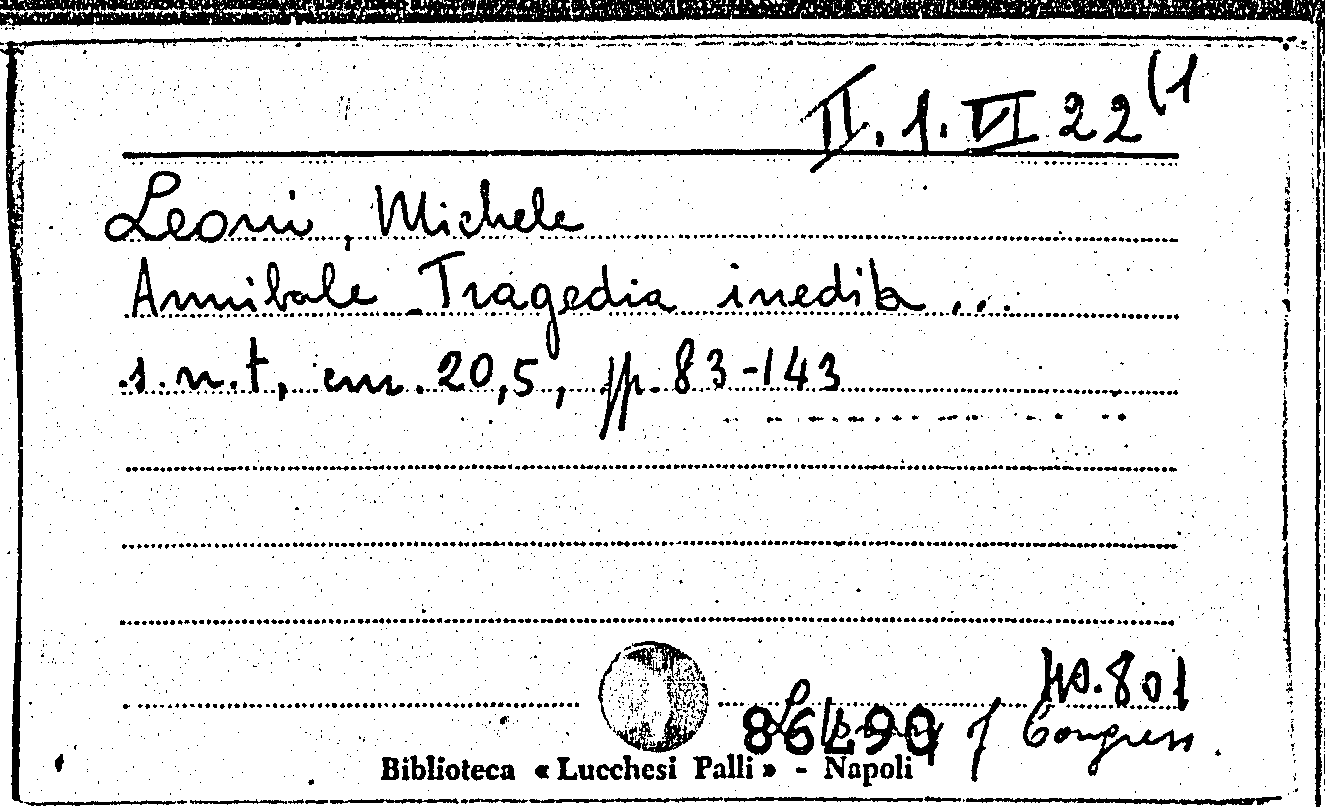 II. 1. VI 22 (1
Leoni, Michele
Annibale - Tragedia inedita ...
s.n.t., cm. 20,5, pp. 83-143
801
Library of Congress
86790
Biblioteca « Lucchesi Palli » - Napoli